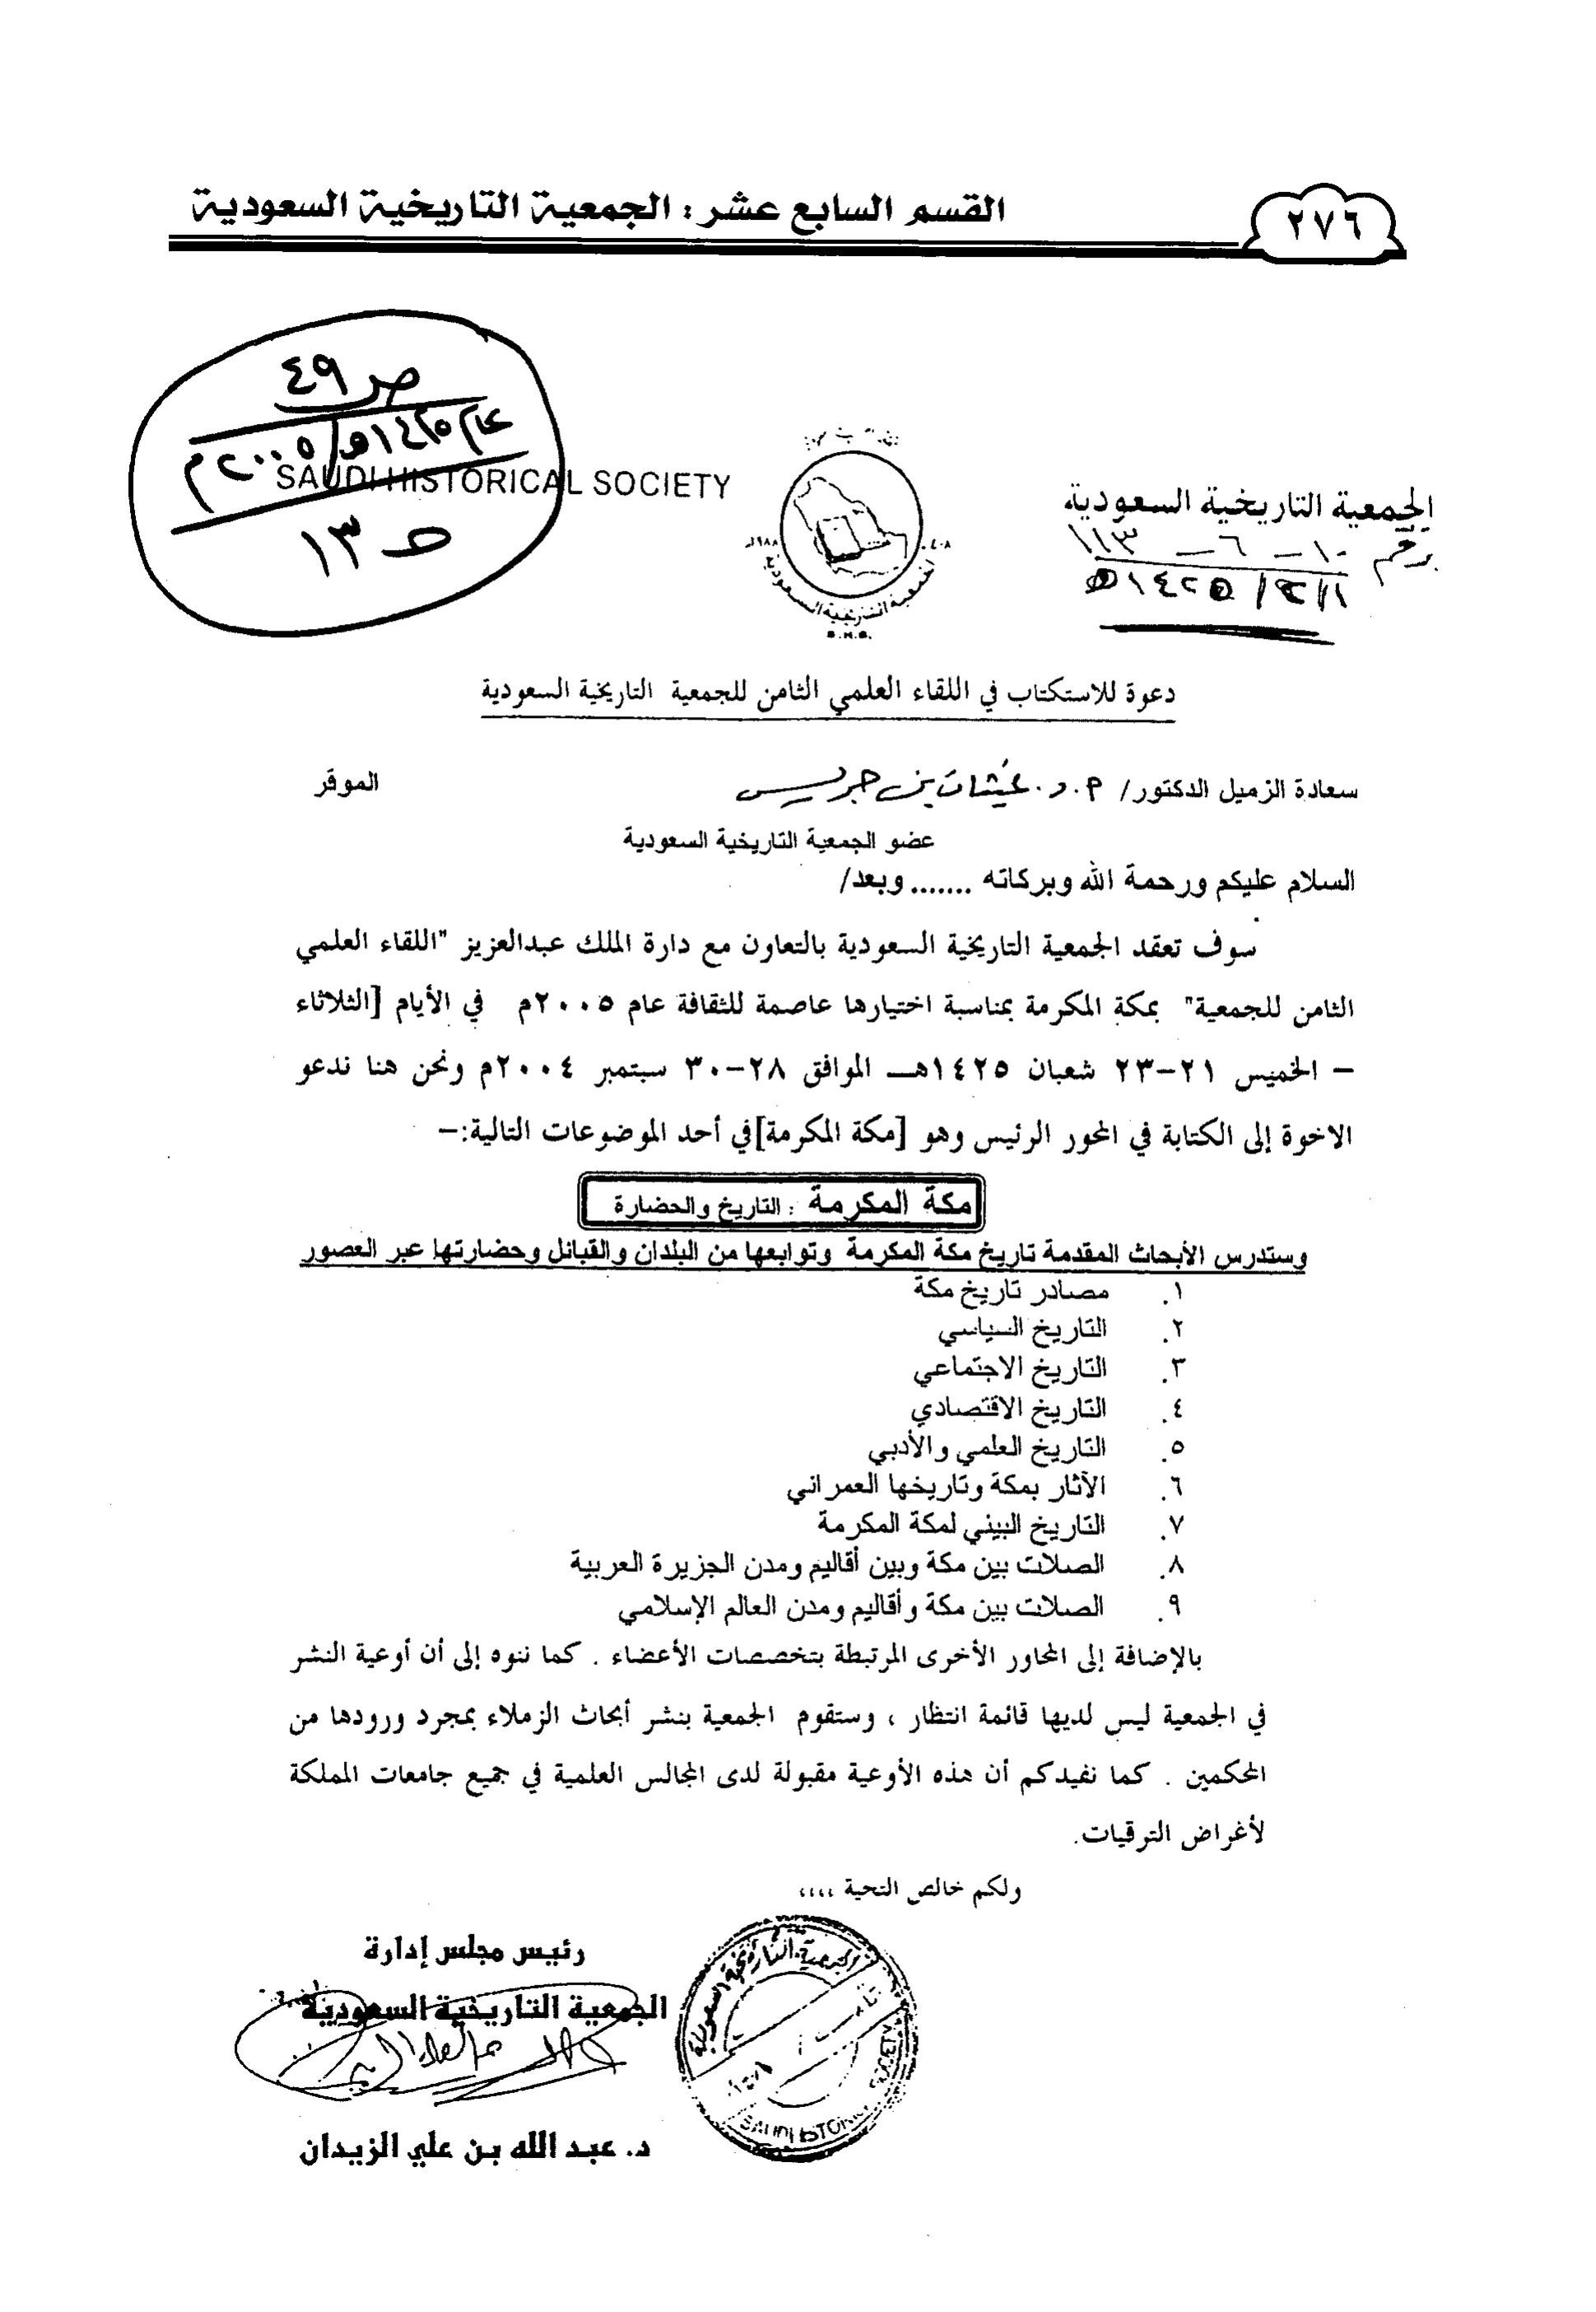 ٢٧٦
القسم السابع عشر: الجمعية التاريخية السعودية
ص ٤٩
عام ١٤٢٥هـ/٢٠٠٥م
ص ١٣
SAUDI HISTORICAL SOCIETY
الجمعية التاريخية السعودية
١٩٨٨م
الجمعية التاريخية السعودية
S.H.S.
الجمعية التاريخية السعودية
رقم ١٠-٦-١١٣
١٤٢٥هـ
دعوة للاستكتاب في اللقاء العلمي الثامن للجمعية التاريخية السعودية
سعادة الزميل الدكتور/ م.د. غيثان بن جريس الموقر
عضو الجمعية التاريخية السعودية
السلام عليكم ورحمة الله وبركاته ....... وبعد/
سوف تعقد الجمعية التاريخية السعودية بالتعاون مع دارة الملك عبدالعزيز "اللقاء العلمي
الثامن للجمعية" بمكة المكرمة بمناسبة اختيارها عاصمة للثقافة عام ٢٠٠٥م في الأيام [الثلاثاء
– الخميس ٢١-٢٣ شعبان ١٤٢٥هـ الموافق ٢٨-٣٠ سبتمبر ٢٠٠٤م ونحن هنا ندعو
الاخوة إلى الكتابة في المحور الرئيس وهو [مكة المكرمة]في أحد الموضوعات التالية:–
مكة المكرمة : التاريخ والحضارة
وستدرس الأبحاث المقدمة تاريخ مكة المكرمة وتوابعها من البلدان والقبائل وحضارتها عبر العصور
١. مصادر تاريخ مكة
٢. التاريخ السياسي
٣. التاريخ الاجتماعي
٤. التاريخ الاقتصادي
٥. التاريخ العلمي والأدبي
٦. الآثار بمكة وتاريخها العمراني
٧. التاريخ البيئي لمكة المكرمة
٨. الصلات بين مكة وبين أقاليم ومدن الجزيرة العربية
٩. الصلات بين مكة وأقاليم ومدن العالم الإسلامي
بالإضافة إلى المحاور الأخرى المرتبطة بتخصصات الأعضاء . كما ننوه إلى أن أوعية النشر
في الجمعية ليس لديها قائمة انتظار ، وستقوم الجمعية بنشر أبحاث الزملاء بمجرد ورودها من
المحكمين . كما نفيدكم أن هذه الأوعية مقبولة لدى المجالس العلمية في جميع جامعات المملكة
لأغراض الترقيات.
ولكم خالص التحية ،،،،
رئيس مجلس إدارة
الجمعية التاريخية السعودية
د. عبد الله بن علي الزيدان
الجمعية التاريخية السعودية